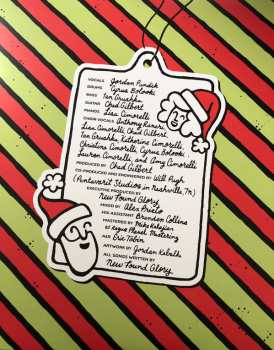 VOCALS Jordan Pundik
DRUMS Cyrus Bolooki
BASS Ian Grushka
GUITAR Chad Gilbert
PIANOS Lisa Cimorelli
CHOIR VOCALS Anthony Raneri,
Lisa Cimorelli, Chad Gilbert,
Ian Grushka, Katherine Cimorelli,
Christina Cimorelli, Cyrus Bolooki
Lauren Cimorelli, and Amy Cimorelli
PRODUCED BY Chad Gilbert
CO-PRODUCED AND ENGINEERED BY Will Pugh
(Pentavarit Studios in Nashville, TN)
EXECUTIVE PRODUCED BY
New Found Glory
MIXED BY Alex Prieto
MIX ASSISTANT Brandon Collins
MASTERED BY Mike Kalajian
at Rogue Planet Mastering
A&R Eric Tobin
ARTWORK BY Jordan Kabalka
ALL SONGS WRITTEN BY
New Found Glory